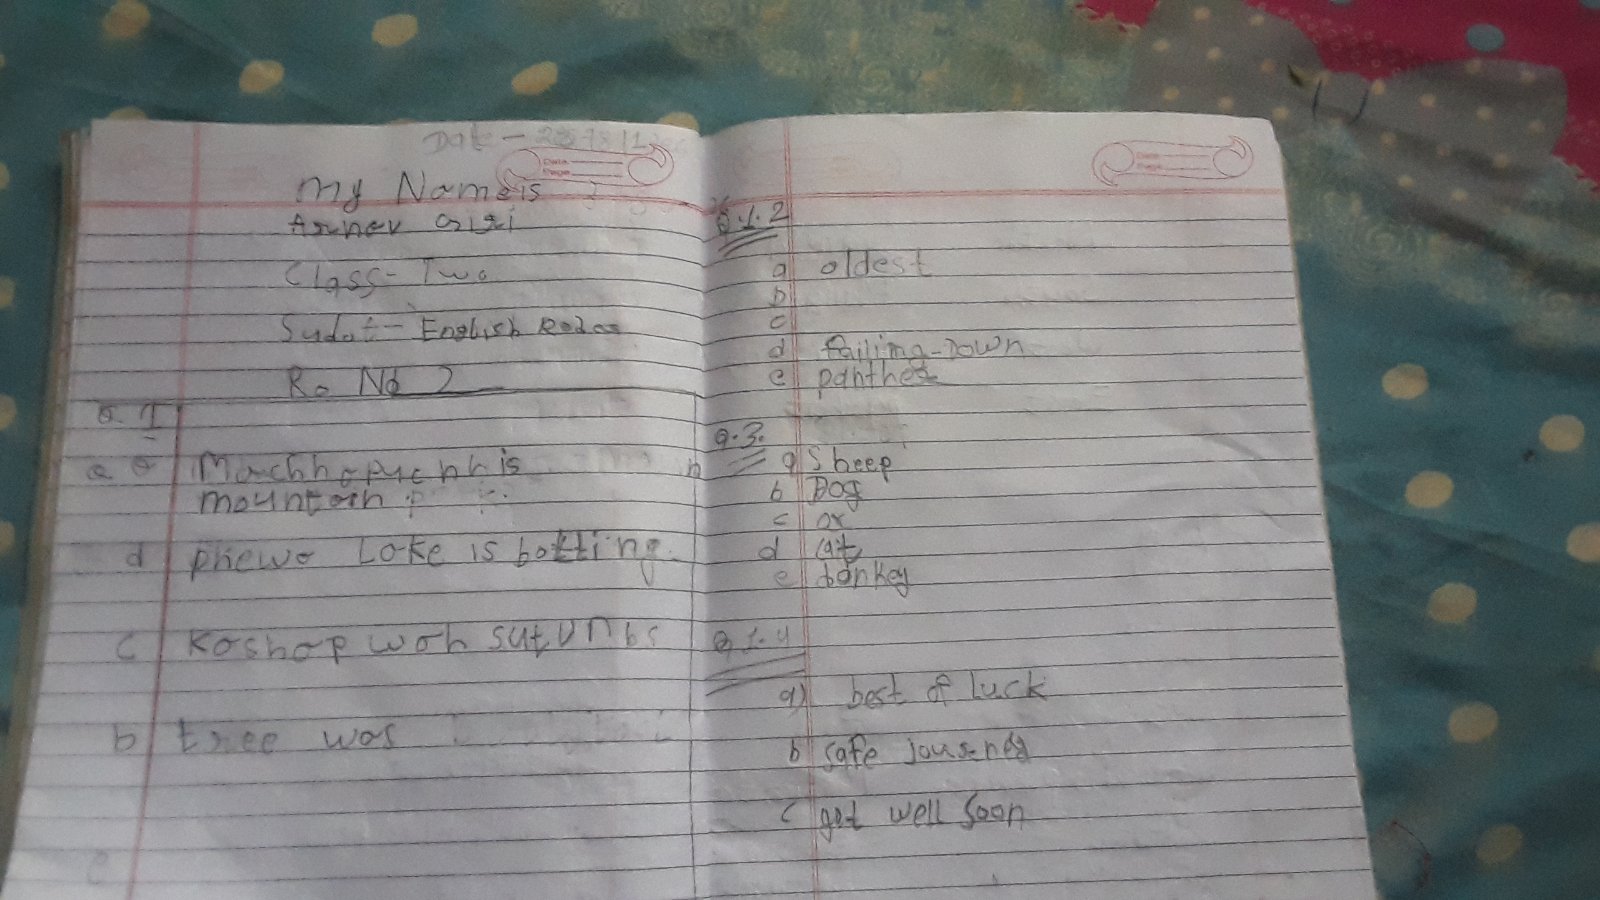 Date -
My Name is
Arnav Giri
Class- Two
Sudat- English
Ro No 2
Q. 1
a Machhapuchh is
mountain
d phewa Lake is botting
c
b tree was
Q.1.2
a oldest
b
c
d failing-Down
e panther
Q.3.
a Sheep
b Dog
c ox
d cat
e donkey
Q.1.4
a) best of luck
b safe journey
c get well soon